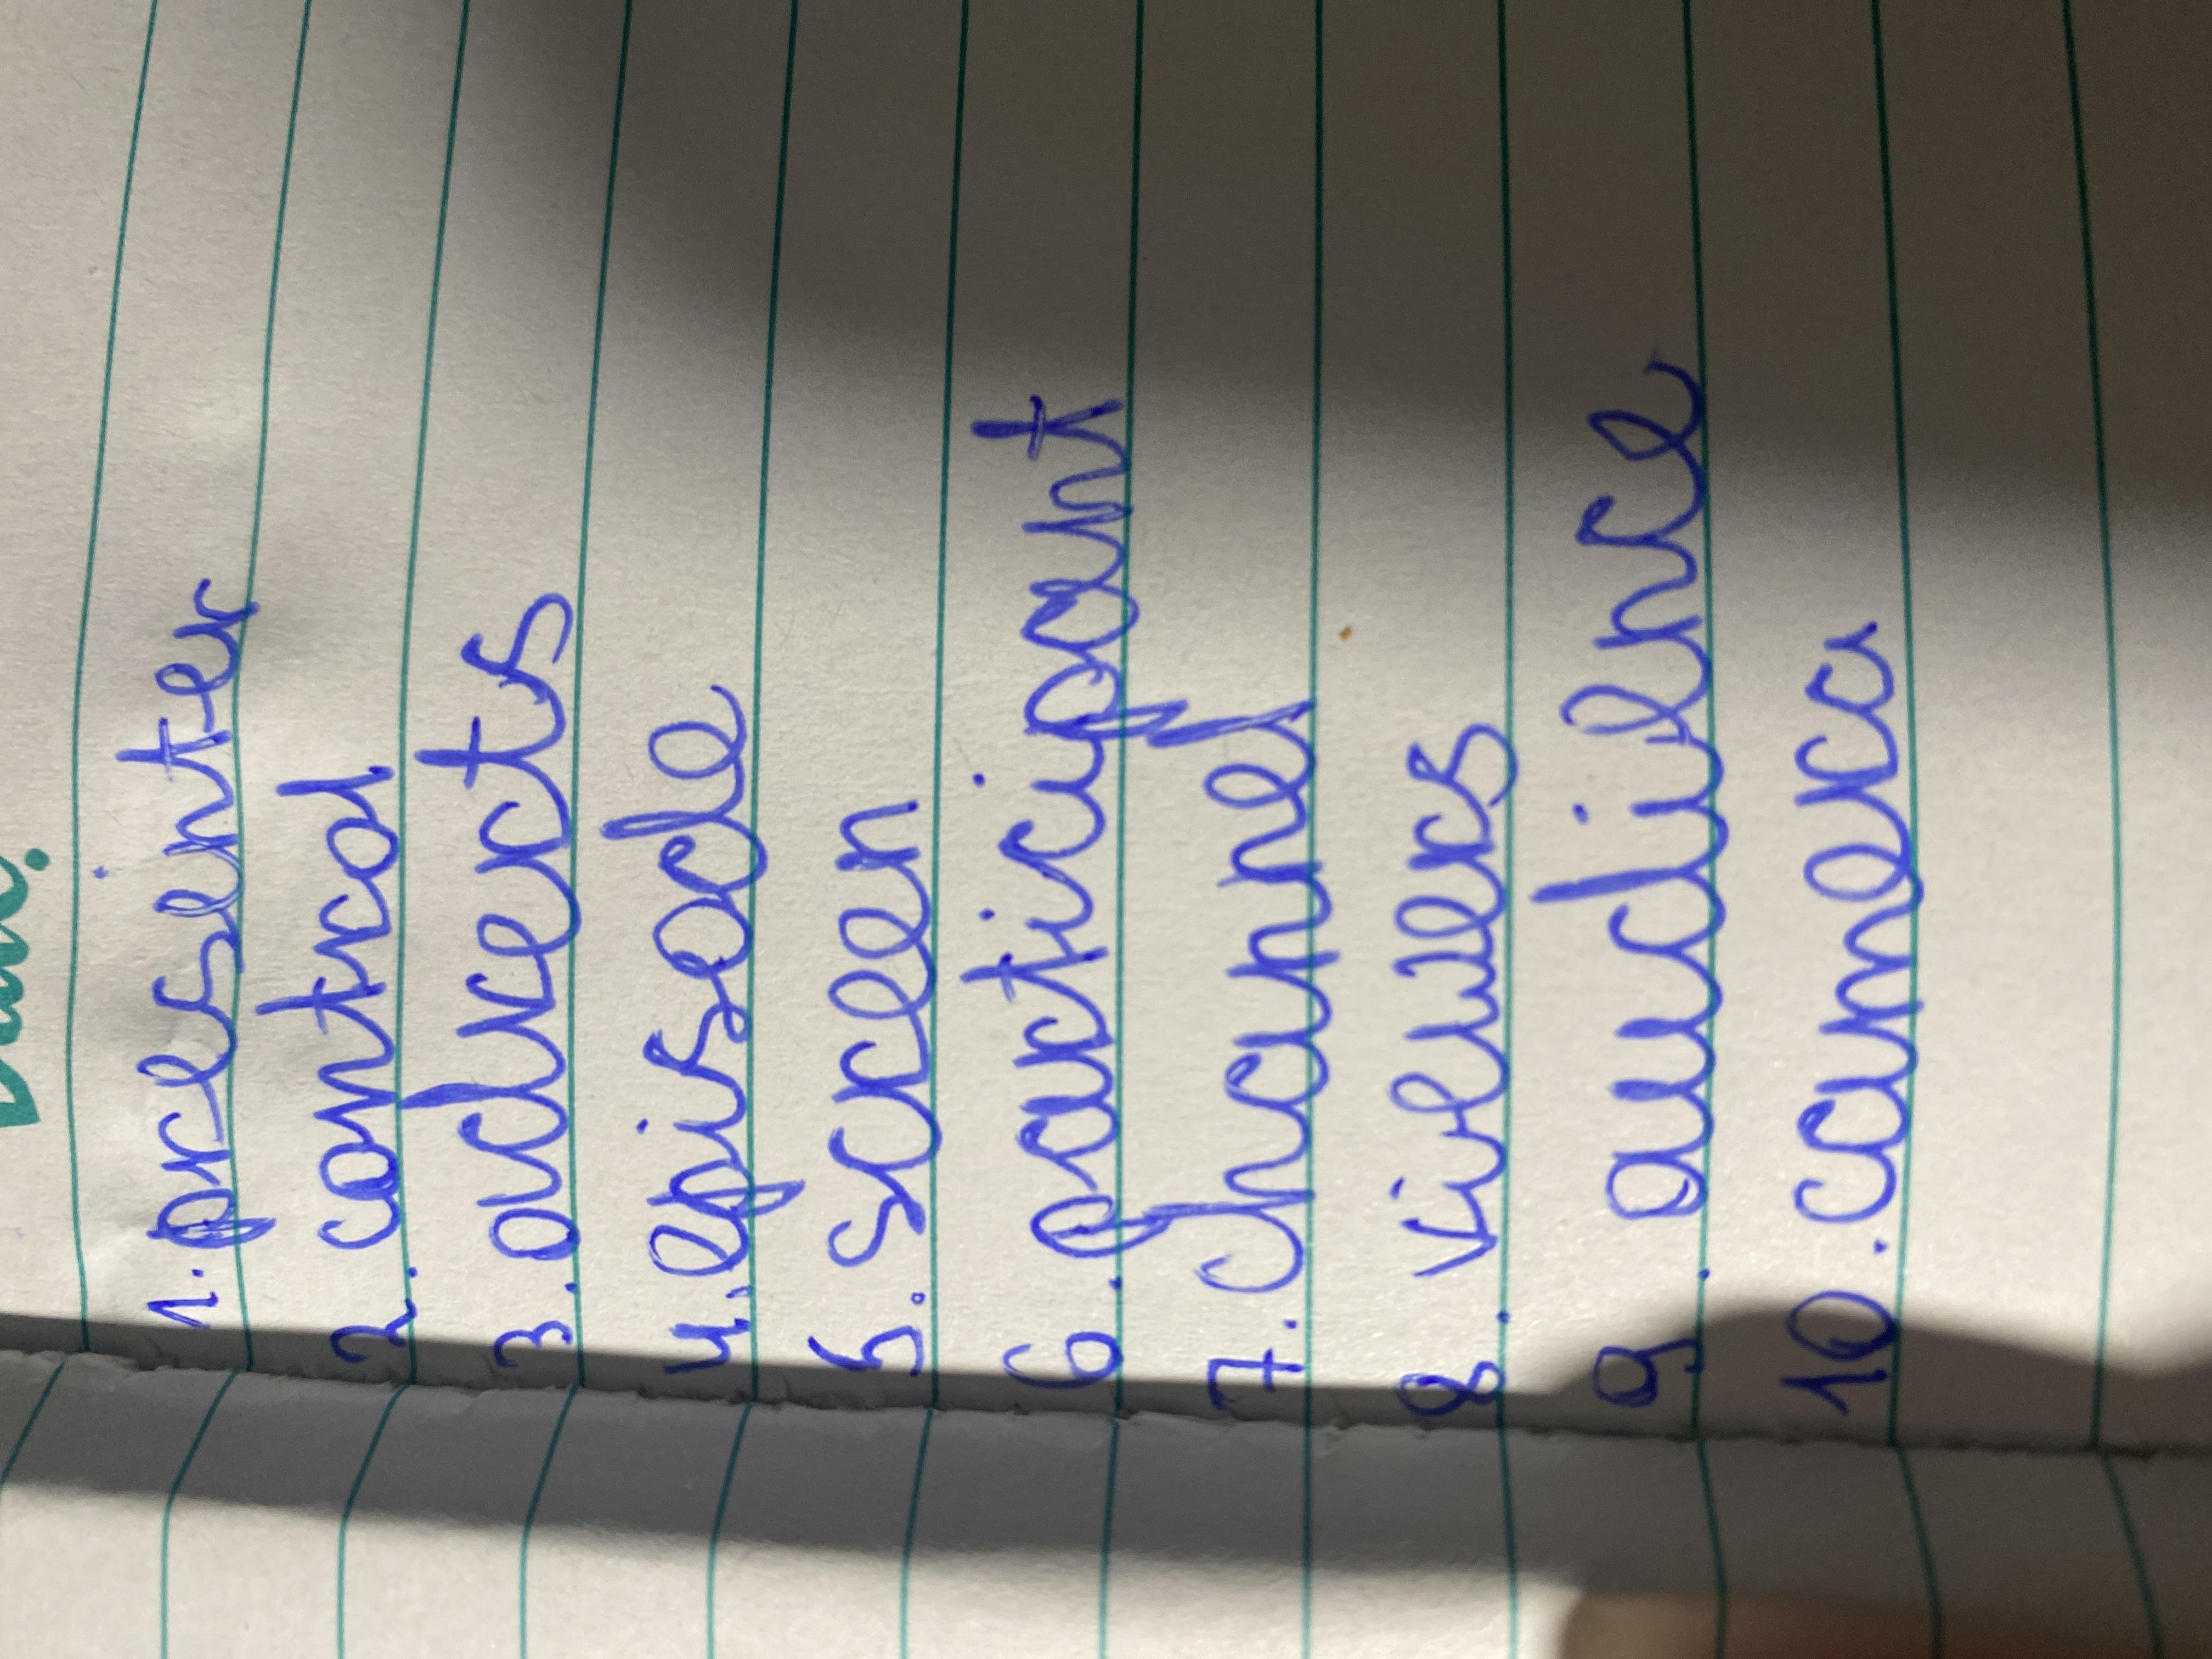 1. presenter
2. control
3. adverts
4. episode
5. screen
6. participant
7. channel
8. viewers
9. audience
10. camera